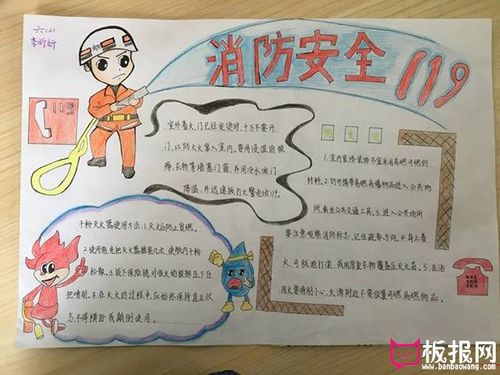 六(2)
李昕妍
消防安全 119
119
室外着火门已经发烫时,千万不要开
门,以防大火窜入室内,要用浸湿的被
褥、衣物等堵塞门窗,并用泼水
降温,并迅速拨打火警电话119。
1.室内装修装饰不宜采用易燃可燃的
材料。2.切勿携带易燃易爆物品进入公共场
所、乘坐公共交通工具。3.进入公共场所
要注意观察消防标志,记住疏散方向。4.身上着
火,可就地打滚,或用厚重衣物覆盖压灭火苗。5.生活
用火要特别小心,火源附近不要放置可燃易燃物品。
干粉灭火器使用方法:1.灭火
2.使用前先把灭火器摇几次,使瓶内干粉
松散。3.拔下保险销,对准火焰根部压下压
把喷射。4.在灭火的过程中,应始终保持直立状
态,不得横卧或颠倒使用。
板报网
www.banbaowang.com